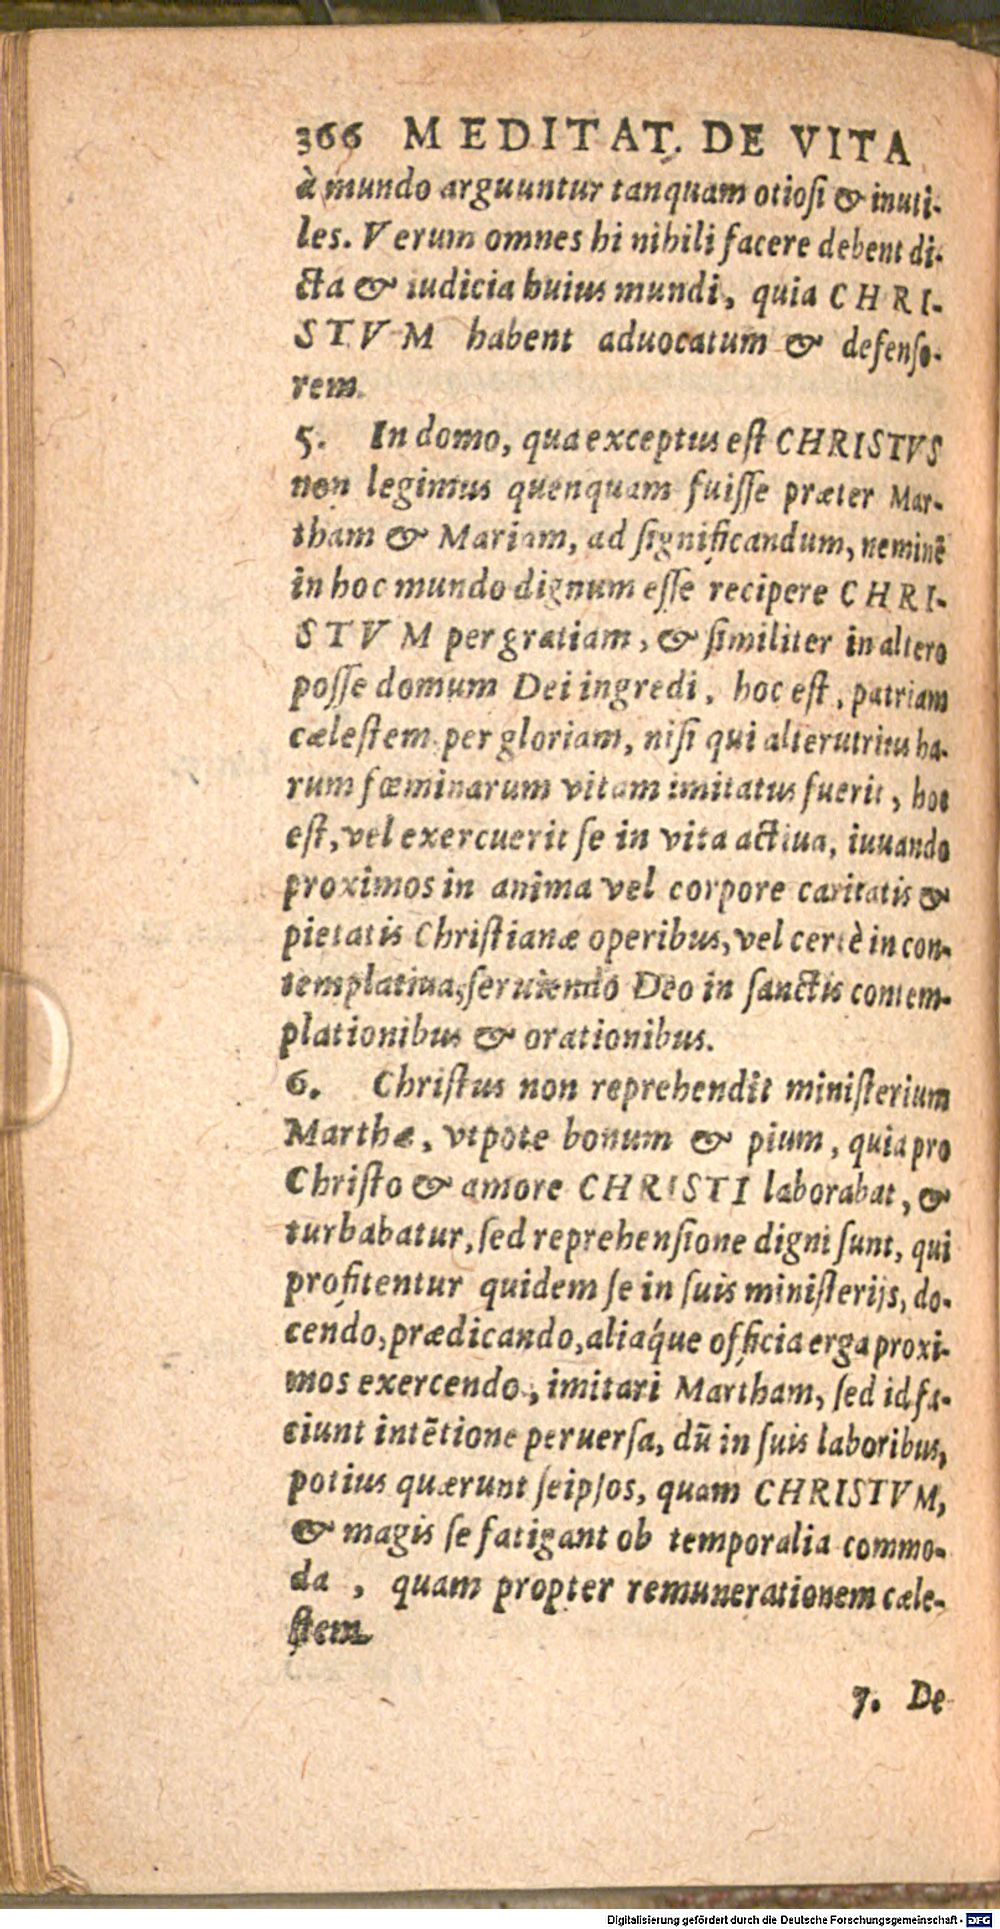 366 MEDITAT. DE VITA
à mundo arguuntur tanquam otiosi & inuti-
les. Verum omnes hi nihili facere debent di-
cta & iudicia huius mundi, quia CHRI-
STVM habent aduocatum & defenso-
rem.
5. In domo, qua exceptus est CHRISTVS
non legimus quenquam fuisse præter Mar-
tham & Mariam, ad significandum, neminẽ
in hoc mundo dignum esse recipere CHRI-
STVM per gratiam, & similiter in altero
posse domum Dei ingredi, hoc est, patriam
cælestem per gloriam, nisi qui alterutrius ha-
rum fœminarum vitam imitatus fuerit, hoc
est, vel exercuerit se in vita actiua, iuuando
proximos in anima vel corpore caritatis &
pietatis Christianæ operibus, vel certè in con-
templatiua, seruiendo Deo in sanctis contem-
plationibus & orationibus.
6. Christus non reprehendit ministerium
Marthæ, vtpote bonum & pium, quia pro
Christo & amore CHRISTI laborabat, &
turbabatur, sed reprehensione digni sunt, qui
profitentur quidem se in suis ministerijs, do-
cendo, prædicando, aliaq́ue officia erga proxi-
mos exercendo, imitari Martham, sed id fa-
ciunt intẽtione peruersa, dũ in suis laboribus,
potius quærunt seipsos, quam CHRISTVM,
& magis se fatigant ob temporalia commo-
da, quam propter remunerationem cæle-
stem.
7. De
Digitalisierung gefördert durch die Deutsche Forschungsgemeinschaft - DFG